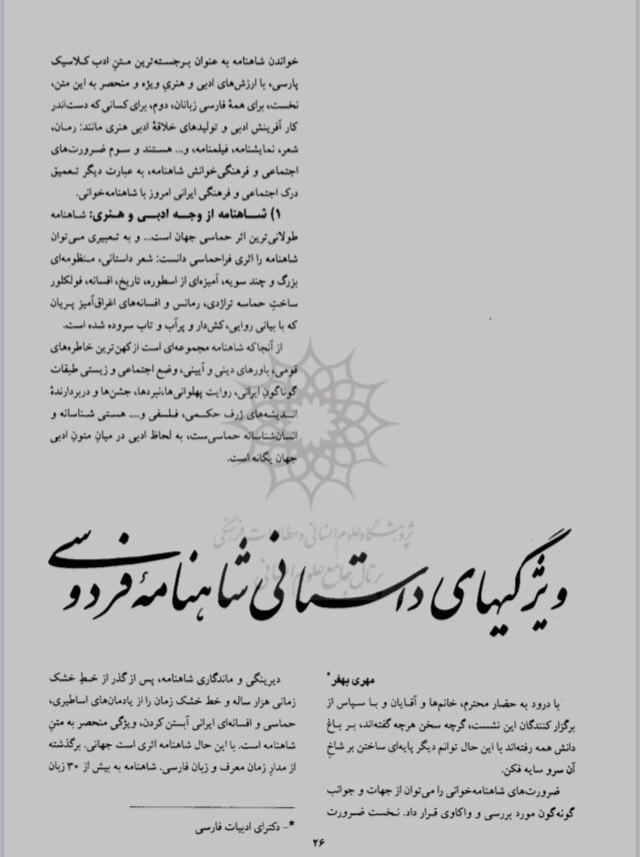 ویژگیهای داستانی شاهنامهٔ فردوسی
مهری بهفر*
با درود به حضار محترم، خانم‌ها و آقایان و با سپاس از
برگزارکنندگان این نشست، گرچه سخن هرچه گفته‌اند، بر باغ
دانش همه رفته‌اند با این حال توانم دیگر پایه‌ای ساختن بر شاخِ
آن سرو سایه فکن.
ضرورت‌های شاهنامه‌خوانی را می‌توان از جهات و جوانب
گونه‌گون مورد بررسی و واکاوی قرار داد. نخست ضرورت
خواندن شاهنامه به عنوان برجسته‌ترین متنِ ادب کلاسیک
پارسی، با ارزش‌های ادبی و هنریِ ویژه و منحصر به این متن،
نخست، برای همهٔ فارسی زبانان، دوم، برای کسانی که دست‌اندر
کار آفرینش ادبی و تولیدهای خلاقهٔ ادبی هنری مانند: رمان،
شعر، نمایشنامه، فیلمنامه، و... هستند و سوم ضرورت‌های
اجتماعی و فرهنگی‌خوانش شاهنامه، به عبارت دیگر تعمیق
درک اجتماعی و فرهنگی ایرانی امروز با شاهنامه‌خوانی.
۱) شاهنامه از وجه ادبی و هنری: شاهنامه
طولانی‌ترین اثر حماسی جهان است... و به تعبیری می‌توان
شاهنامه را اثری فراحماسی دانست: شعر داستانی، منظومه‌ای
بزرگ و چند سویه، آمیزه‌ای از اسطوره، تاریخ، افسانه، فولکلور
ساختِ حماسه تراژدی، رمانس و افسانه‌های اغراق‌آمیز پریان
که با بیانی روایی، کش‌دار و پرآب و تاب سروده شده است.
از آنجا که شاهنامه مجموعه‌ای است از کهن‌ترین خاطره‌های
قومی، باورهای دینی و آیینی، وضع اجتماعی و زیستی طبقات
گوناگونِ ایرانی، روایت پهلوانی‌ها،نبردها، جشن‌ها و دربردارندهٔ
اندیشه‌های ژرف حکمی، فلسفی و.... هستی شناسانه و
انسان‌شناسانه حماسی‌ست، به لحاظ ادبی در میانِ متونِ ادبی
جهان یگانه است.
دیرینگی و ماندگاری شاهنامه، پس از گذر از خطِ خشک
زمانی هزار ساله و خط خشک زمان را از یادمان‌های اساطیری،
حماسی و افسانه‌ای ایرانی آبستن کردن، ویژگی منحصر به متنِ
شاهنامه است. با این حال شاهنامه اثری است جهانی. برگذشته
از مدارِ زمان معرف و زبان فارسی. شاهنامه به بیش از ۳۰ زبان
*- دکترای ادبیات فارسی
۲۶
پژوهشگاه علوم انسانی و مطالعات فرهنگی
پرتال جامع علوم انسانی